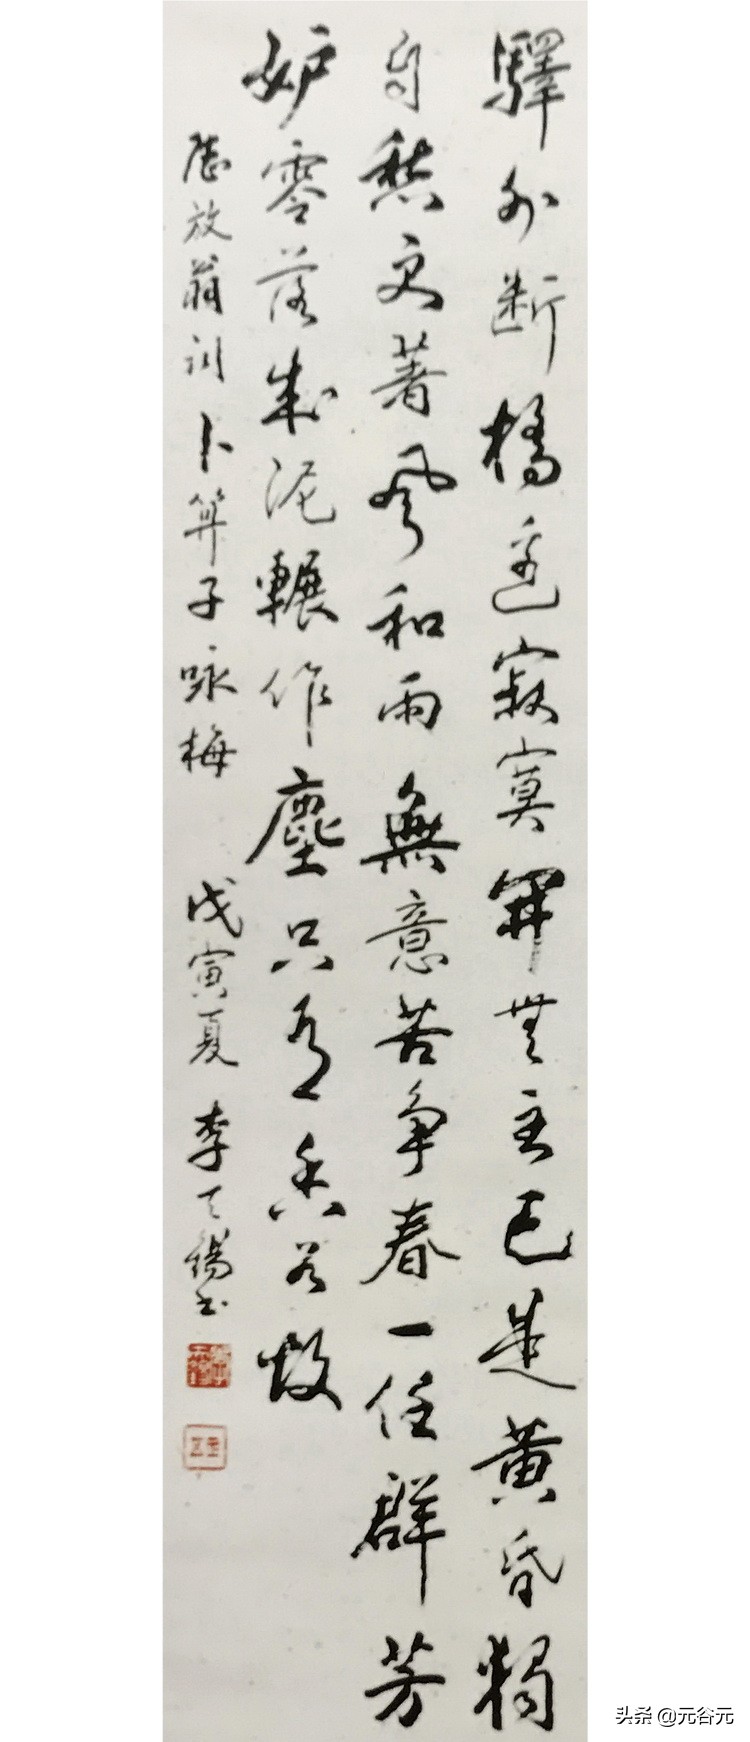 驛外断橋邊寂寞開無主已是黄昏獨
自愁更著風和雨無意苦争春一任群芳
妒零落成泥輾作塵只有香如故
陸放翁词卜算子咏梅 戊寅夏 李天錫书
头条 @元谷元